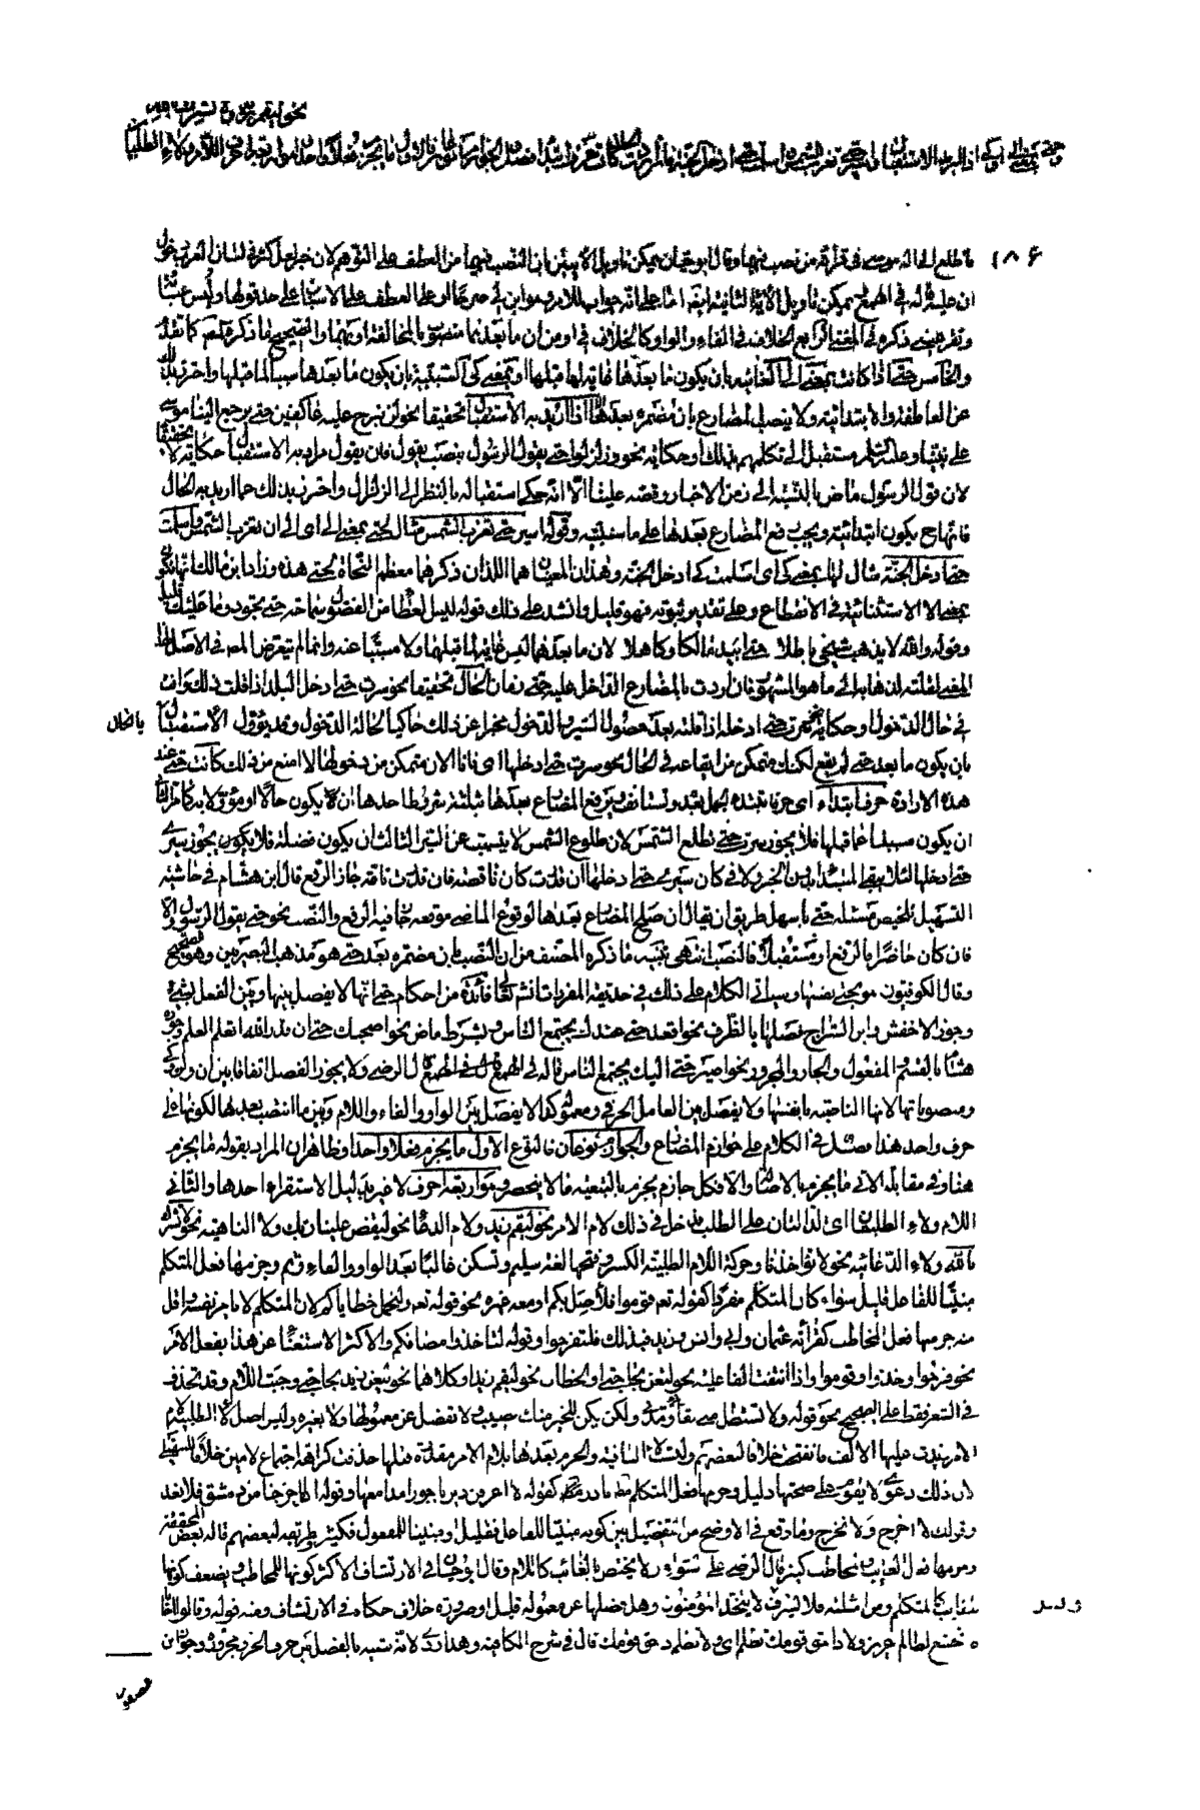 نحو ليقم زيد ولا تشرك بالله
وحتى بمعنى الى او كي اذا اريد به الاستقبال نحو اسير حتى تغرب الشمس اسلمت حتى ادخل الجنة فان اردت الحال كانت حرف ابتداء فصل الجوازم نوعان فالاول ما يجزم فعلا واحدا وهو اربعة احرف اللام ولا الطلبيتان
١٨٦
فاطلع الى اله موسى في قراءة من نصب فيهما وقال ابو حيان يمكن تاويل الآيتين بان النصب فيهما من العطف على التوهم لان خبر لعل كثر في لسان العرب دخول
ان عليه قاله في الهمع يمكن تاويل الآية الثانية ايضا على انه جواب للامر وهو ابن لي صرحا او على العطف على الاسباب على حد قولها ولبس عباءة
وتقر عيني ذكره في المغني الرابع الخلاف في الفاء والواو كالخلاف في او من ان ما بعدها منصوب بالمخالفة او بهما والصحيح ما ذكره المصنف كما تقدم
والخامس حتى اذا كانت بمعنى الى الغائية بان يكون ما بعدها غاية لما قبلها او بمعنى كي السببية بان يكون ما بعدها سببا لما قبلها واحترز بذلك
عن العاطفة والابتدائية ولا ينصب المضارع بان مضمرة بعدها الا اذا اريد به الاستقبال تحقيقا نحو لن نبرح عليه عاكفين حتى يرجع الينا موسى
على نبينا وعليه السلام مستقبل الى تكلمهم بذلك او حكاية نحو وزلزلوا حتى يقول الرسول بنصب يقول فان يقول مراد به الاستقبال حكاية لا تحقيقا
لان قول الرسول ماض بالنسبة الى زمن الاخبار وقصه علينا الا انه حكى استقباله بالنظر الى الزلزال واحترز بذلك عما اريد به الحال
فانها ح يكون ابتدائية ويجب رفع المضارع بعدها على ما سنبينه وقوله اسير حتى تغرب الشمس مثال لحتى بمعنى الى اى الى ان تغرب الشمس واسلمت
حتى ادخل الجنة مثال لها بمعنى كي اى اسلمت كي ادخل الجنة وهذان المعنيان هما اللذان ذكرهما معظم النحاة لحتى هذه وزاد ابن مالك انها تكون
بمعنى الا الاستثنائية في الانقطاع وعلى تقدير ثبوته فهو قليل وانشد على ذلك قوله ليس العطاء من الفضول سماحة حتى تجود وما لديك قليل
وقوله والله لا يذهب شيخي باطلا حتى ابير مالكا وكاهلا لان ما بعدهما ليس غاية لما قبلها ولا مسببا عنه وانما لم يتعرض المص في الاصل لهذا
المعنى لقلته او ذهابا الى ما هو المشهور فان اردت بالمضارع الداخل عليه حتى زمان الحال تحقيقا نحو سرت حتى ادخل البلد اذا قلت ذلك وانت
في حال الدخول او حكاية نحو سرت حتى ادخله اذا قلته بعد حصول السير والدخول مخبرا عن ذلك حاكيا لحالة الدخول وقد يؤول الاستقبال بالحال
بان يكون ما بعد حتى لم يقع لكنك متمكن من ايقاعه في الحال نحو سرت حتى ادخلها اى فانا الآن متمكن من دخولها لا امنع من ذلك كانت حتى عند
هذه الارادة حرف ابتداء اى حرفا تبتدء الجمل بعده وتستانف ويرفع المضارع بعدها بثلثة شروط احدها ان يكون حالا او مؤولا به كما مر الثاني
ان يكون مسببا عما قبلها فلا يجوز سرت حتى تطلع الشمس لان طلوع الشمس لا يتسبب عن السير الثالث ان يكون فضلة فلا يكون يجوز سيرى
حتى ادخلها لئلا يبقى المبتدا بدون الخبر ولا في كان سيرى حتى ادخلها ان قدرت كان ناقصة فان قدرت تامة جاز الرفع قال ابن هشام في حاشية
التسهيل تلخيص مسئلة حتى باسهل طريق ان يقال ان صلح المضارع بعدها لوقوع الماضي موقعه جاز فيه الرفع والنصب نحو حتى يقول الرسول والا
فان كان حاضرا فالرفع او مستقبلا فالنصب انتهى تنبيه ما ذكره المصنف من ان النصب بان مضمرة بعد حتى هو مذهب البصريين وهو الصحيح
وقال الكوفيون هو بحتى نفسها وسياتي الكلام على ذلك في حديقة المفردات انشاء الله تعالى فائدة من احكام حتى انها لا يفصل بينها وبين الفعل بشيء
وجوز الاخفش وابن السراج فصلها بالظرف نحو اقعد حتى عندك يجتمع الناس وبشرط ماض نحو اصحبك حتى ان قدر الله اتعلم العلم وجوزه
هشام بالقسم والمفعول والجار والمجرور نحو اصبر حتى اليك يجتمع الناس قاله في الهمع قال الرضي ولا يجوز الفصل اتفاقا بين ان ولن وكي
ومنصوباتها لانها الناصبة بانفسها ولا يفصل بين العامل الحرفي ومعموله كما لا يفصل بين الواو والفاء واللام وبين ما انتصب بعدها لكونها على
حرف واحد هذا فصل في الكلام على جوازم المضارع والجوازم نوعان فالنوع الاول ما يجزم فعلا واحدا وظاهر ان المراد بقوله ما يجزم
هنا وفي مقابله الآتي ما يجزم بالاصالة والا فكل جازم يجزم بالتبعية ما لا ينحصر وهو اربعة احرف لا غير بدليل الاستقراء احدها والثاني
اللام ولا الطلبيتان اى الدالتان على الطلب فدخل في ذلك لام الامر نحو ليقم زيد ولام الدعاء نحو ليقض علينا ربك ولا الناهية نحو لا تشرك
بالله ولا الدعائية نحو لا تؤاخذنا وحركة اللام الطلبية الكسر وفتحها لغة سليم وتسكن غالبا بعد الواو والفاء وثم وجزمها فعل المتكلم
مبنيا للفاعل قليل سواء كان المتكلم مفردا كقوله تعم قوموا فلاصل لكم او معه غيره نحو قوله تعم ولنحمل خطاياكم لان المتكلم لا يامر نفسه واقل
منه جزمها فعل المخاطب كقرائة عثمان وابي وانس وزيد فبذلك فلتفرحوا وقوله لتاخذوا مصافكم والاكثر الاستغناء عن هذا بفعل الامر
نحو فرحوا وخذوا وقوموا واذا انتفت الفاعلية نحو لتعن بحاجتي او الخطاب نحو ليقم زيد او كلاهما نحو ليعن زيد بحاجتي وجبت اللام وقد تحذف
في الشعر فقط على الصحيح نحو قوله ولا تستطل مني بقائي ومدتي ولكن يكن للخير منك نصيب ولا تفصل عن معمولها ولا بغيره وليس اصل لا الطلبية لام
لام زيدت عليها الالف فانفتحت خلافا لبعضهم وليست لا النافية والجزم بعدها بلام الامر مقدرة قبلها حذفت كراهة اجتماع لامين خلافا للسهيلي
لان ذلك دعوى لا يقوم على صحتها دليل وجزمها فعل المتكلم نادر كقوله لا اعرفن ربربا حورا مدامعها وقوله اذا ما خرجنا من دمشق فلا نعد
وقولك لا اخرج ولا نخرج وما وقع في الاوضح من التفصيل بين كونه مبنيا للفاعل فقليل ومبنيا للمفعول فكثير طريقة لبعضهم قاله بعض المحققين
وجزمها فعل الغايب والمخاطب كثير قال الرضي على السواء ولا يختص بالغائب كاللام وقال ابو حيان في الارتشاف الاكثر كونها للمخاطب ويضعف كونها
للغايب كالمتكلم ومن امثلته فلا يسرف لا يتخذ المؤمنون وفصلها عن معموله قليل او ضرورة خلاف حكاه في الارتشاف ومنه قوله وقالوا اخانا
لا تخشع لظالم عزيز ولا ذا حق قومك تظلم اى ولا تظلم ذا حق قومك قال في شرح الكافية وهذا ردى لانه شبيه بالفصل بين حرف الجر ومجروره وجوز ابن
عصفور